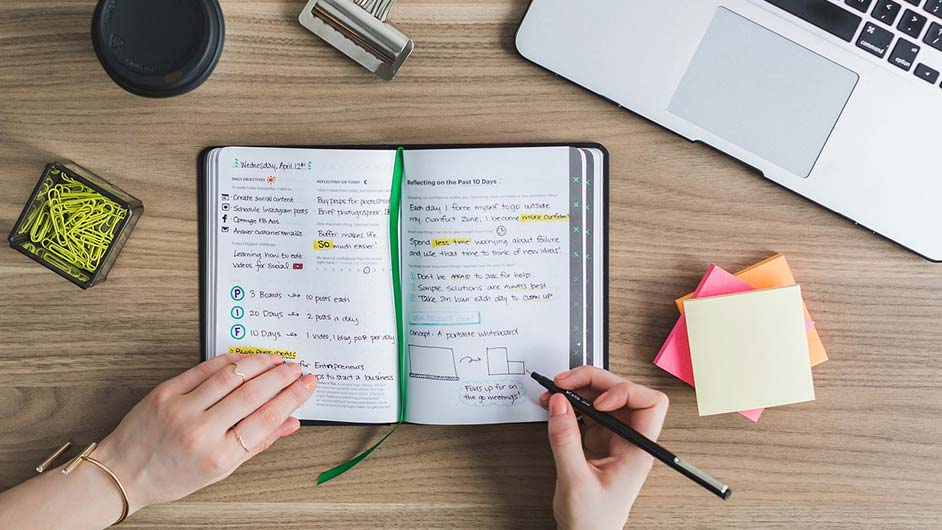 Wednesday, April 12th
DAILY OBJECTIVES
To make today successful, I need to
Create social content
Schedule Instagram posts
Optimize FB Ads
Answer customer emails
Today's biggest challenge
Learning how to edit
videos for social!
P 3 Boards → 10 posts each
I 20 Days → 2 posts a day
F 10 Days → 1 video, 1 blog post per day
BLOG POST IDEAS
for Entrepreneurs
to start a business
REFLECTING ON TODAY
Buy props for photoshoot
Brief photographer
Buffer makes life
SO much easier!
Reflecting on the Past 10 Days
Each day I force myself to go outside
my comfort zone, I become more confident
Spend less time worrying about failure
and use that time to think of new ideas!
① Don't be AFRAID to ask for help.
② Simple solutions are ALWAYS BEST
③ Take an hour each day to CLEAN UP
Concept: A portable whiteboard
Folds up for on
the go meetings!
command
option